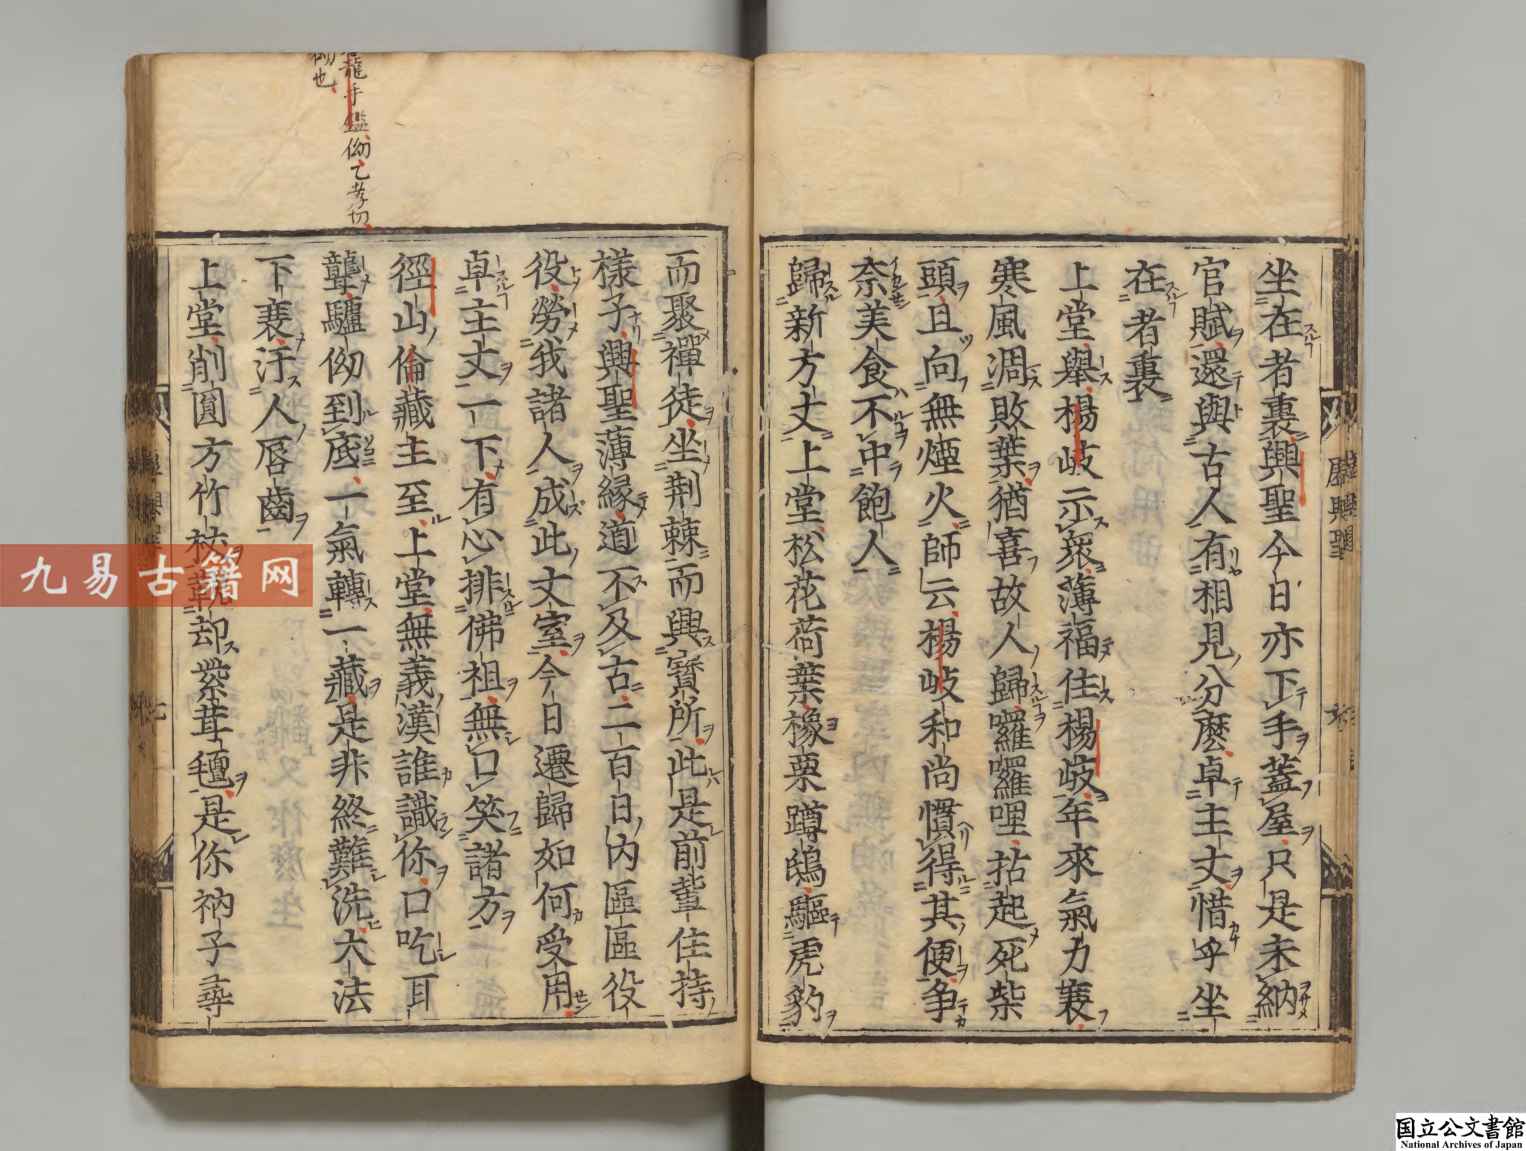 坐在者裏興聖今日亦下手蓋屋只是未納
官賦還與古人有相見分麼卓主丈惜乎坐
在者裏
上堂舉楊岐示衆薄福住楊岐年來氣力衰
寒風凋敗葉猶喜故人歸囉囉哩拈起死柴
頭且向無煙火師云楊岐和尚慣得其便爭
奈美食不中飽人
歸新方丈上堂松花荷葉橡栗蹲鴟驅虎豹
而聚禪徒坐荆棘而興寳所此是前輩住持
樣子興聖薄緣道不及古二百日内區區役
役勞我諸人成此丈室今日遷歸如何受用
卓主丈一下有心排佛祖無口笑諸方
徑山倫藏主至上堂無義漢誰識你口吃耳
聾驢㑃到底一氣轉一藏是非終難洗大法
下衰汙人唇齒
上堂削圓方竹杖却紫茸氊是你衲子尋
龍手鑑㑃乙孝切
㑃也
興聖
九易古籍网
国立公文書館
National Archives of Japan